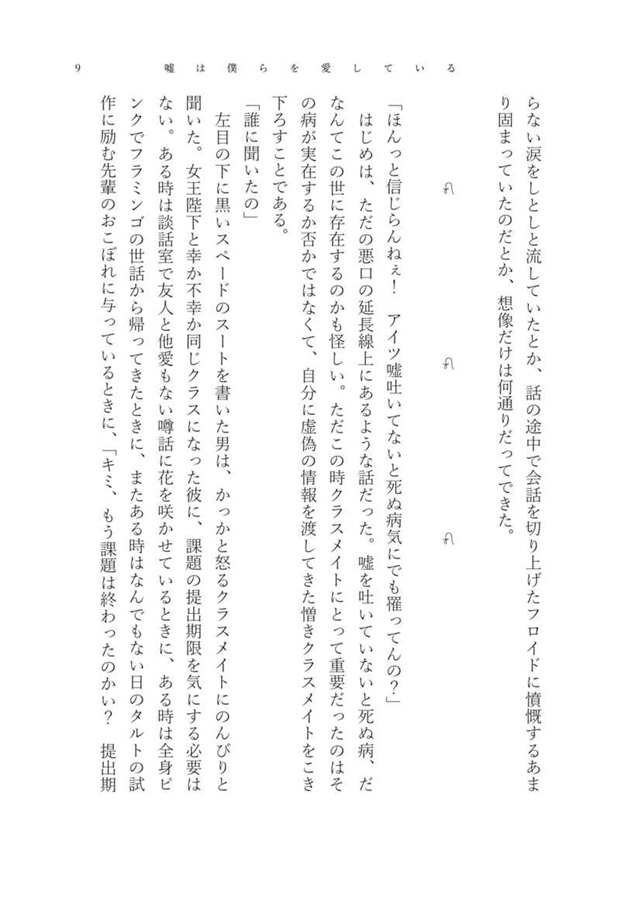 9
嘘は僕らを愛している
らない涙をしとしと流していたとか、話の途中で会話を切り上げたフロイドに憤慨するあま
り固まっていたのだとか、想像だけは何通りだってできた。
「ほんっと信じらんねぇ！　アイツ嘘吐いてないと死ぬ病気にでも罹ってんの？」
はじめは、ただの悪口の延長線上にあるような話だった。嘘を吐いていないと死ぬ病、だ
なんてこの世に存在するのかも怪しい。ただこの時クラスメイトにとって重要だったのはそ
の病が実在するか否かではなくて、自分に虚偽の情報を渡してきた憎きクラスメイトをこき
下ろすことである。
「誰に聞いたの」
左目の下に黒いスペードのスートを書いた男は、かっかと怒るクラスメイトにのんびりと
聞いた。女王陛下と幸か不幸か同じクラスになった彼に、課題の提出期限を気にする必要は
ない。ある時は談話室で友人と他愛もない噂話に花を咲かせているときに、ある時は全身ピ
ンクでフラミンゴの世話から帰ってきたときに、またある時はなんでもない日のタルトの試
作に励む先輩のおこぼれに与っているときに、「キミ、もう課題は終わったのかい？　提出期